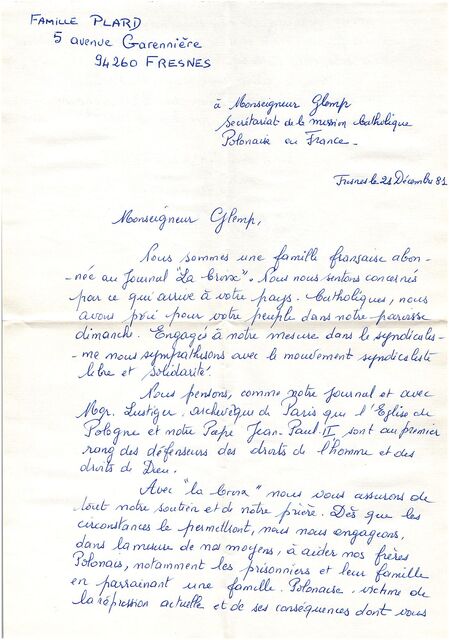 FAMILLE PLARD
5 avenue Garennière
94260 FRESNES
à Monseigneur Glemp
secrétariat de la mission Catholique
Polonaise en France.
Fresnes le 21 Décembre 81
Monseigneur Glemp,
Nous sommes une famille française abon-
-née au Journal "La Croix". Nous nous sentons concernés
par ce qui arrive à votre pays. Catholiques, nous
avons prié pour votre peuple dans notre paroisse
dimanche. Engagés à notre mesure dans le syndicalis-
-me nous sympathisons avec le mouvement syndicaliste
libre et solidarité.
Nous pensons, comme notre Journal et avec
Mgr. Lustiger, archevêque de Paris que l'Eglise de
Pologne et notre Pape Jean-Paul II sont au premier
rang des défenseurs des droits de l'homme et des
droits de Dieu.
Avec "la Croix" nous vous assurons de
tout notre soutien et de notre prière. Dès que les
circonstances le permettront, nous nous engageons,
dans la mesure de nos moyens, à aider nos frères
Polonais, notamment les prisonniers et leur famille
en parrainant une famille Polonaise, victime de
la répression actuelle et de ses conséquences dont vous